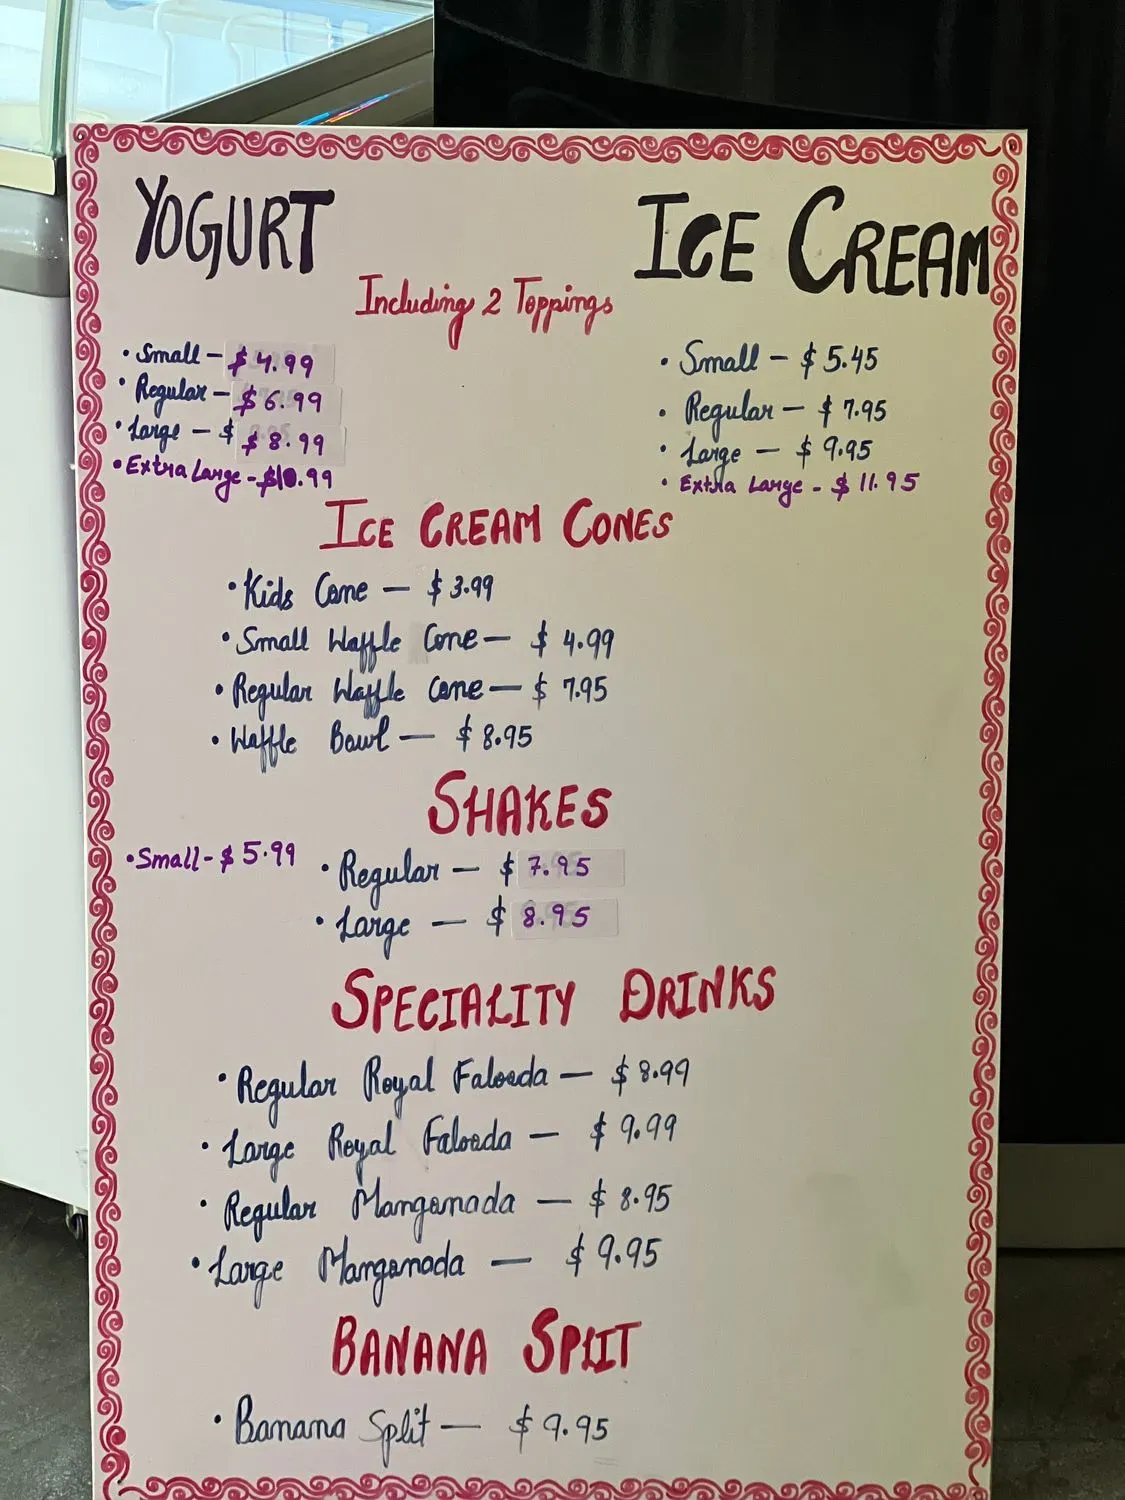 YOGURT
ICE CREAM
Including 2 Toppings
• Small – $4.99
• Regular – $6.99
• Large – $ $8.99
• Extra Large - $10.99
• Small – $5.45
• Regular – $7.95
• Large – $9.95
• Extra Large - $11.95
ICE CREAM CONES
• Kids Cone – $3.99
• Small Waffle Cone – $4.99
• Regular Waffle Cone – $7.95
• Waffle Bowl – $8.95
SHAKES
• Small - $5.99
• Regular – $7.95
• Large – $8.95
SPECIALITY DRINKS
• Regular Royal Falooda – $8.99
• Large Royal Falooda – $9.99
• Regular Mangonada – $8.95
• Large Mangonada – $9.95
BANANA SPLIT
• Banana Split – $9.95